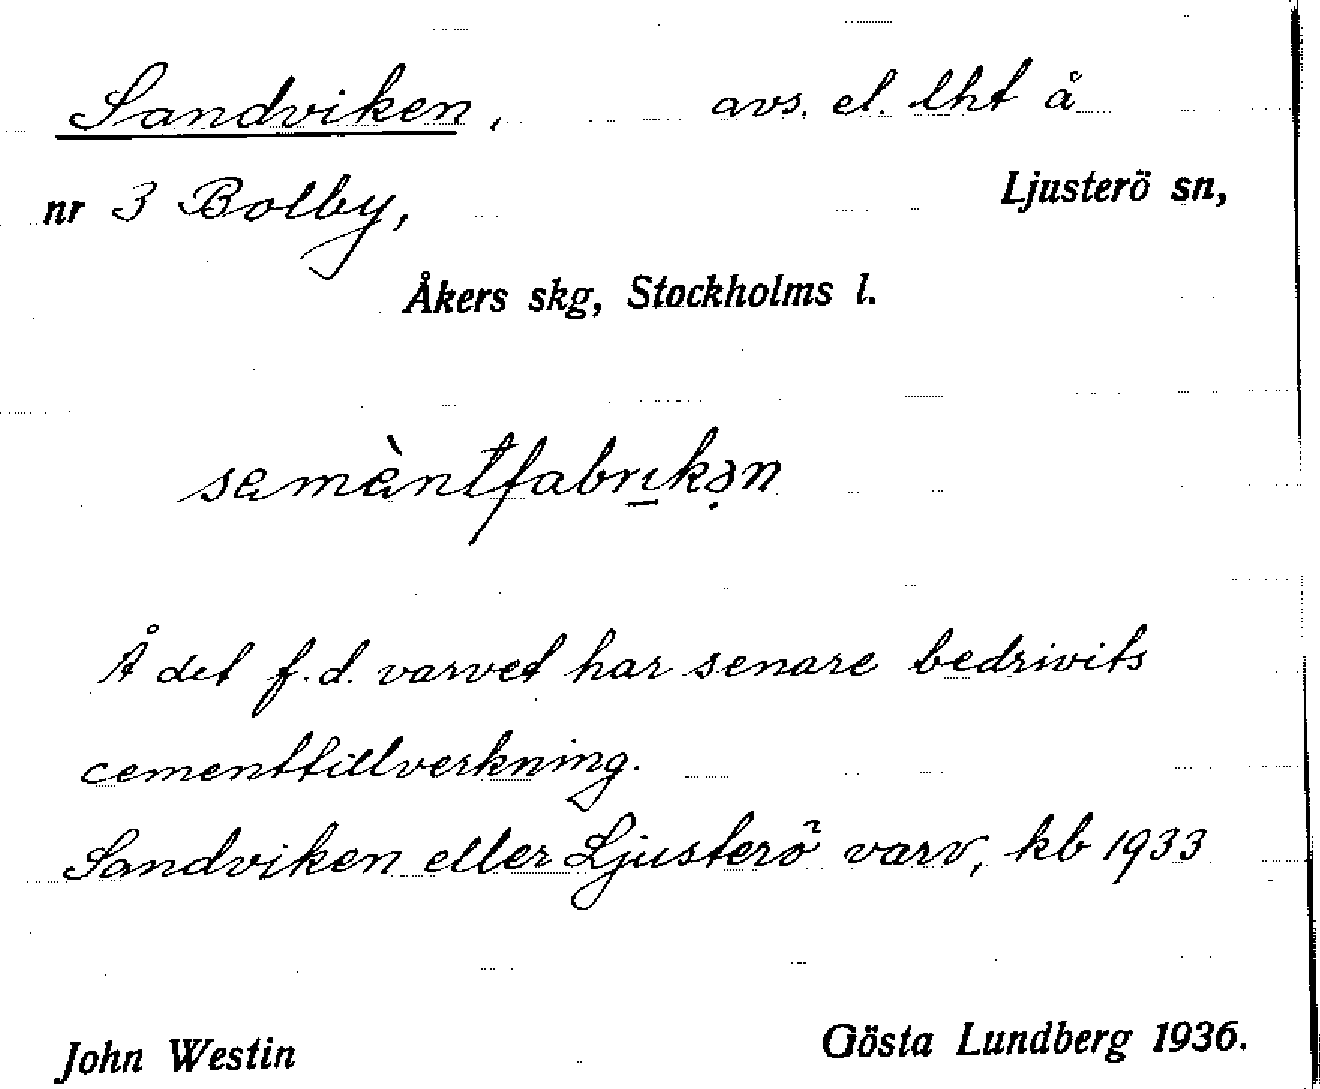 Sandviken, avs. el. lht å
nr 3 Bolby, Ljusterö sn,
Åkers skg, Stockholms l.
semὲntfabrı̲kə̣n
Å det f.d. varvet har senare bedrivits
cementtillverkning.
Sandviken eller Ljusterö varv, kb 1933
John Westin Gösta Lundberg 1936.